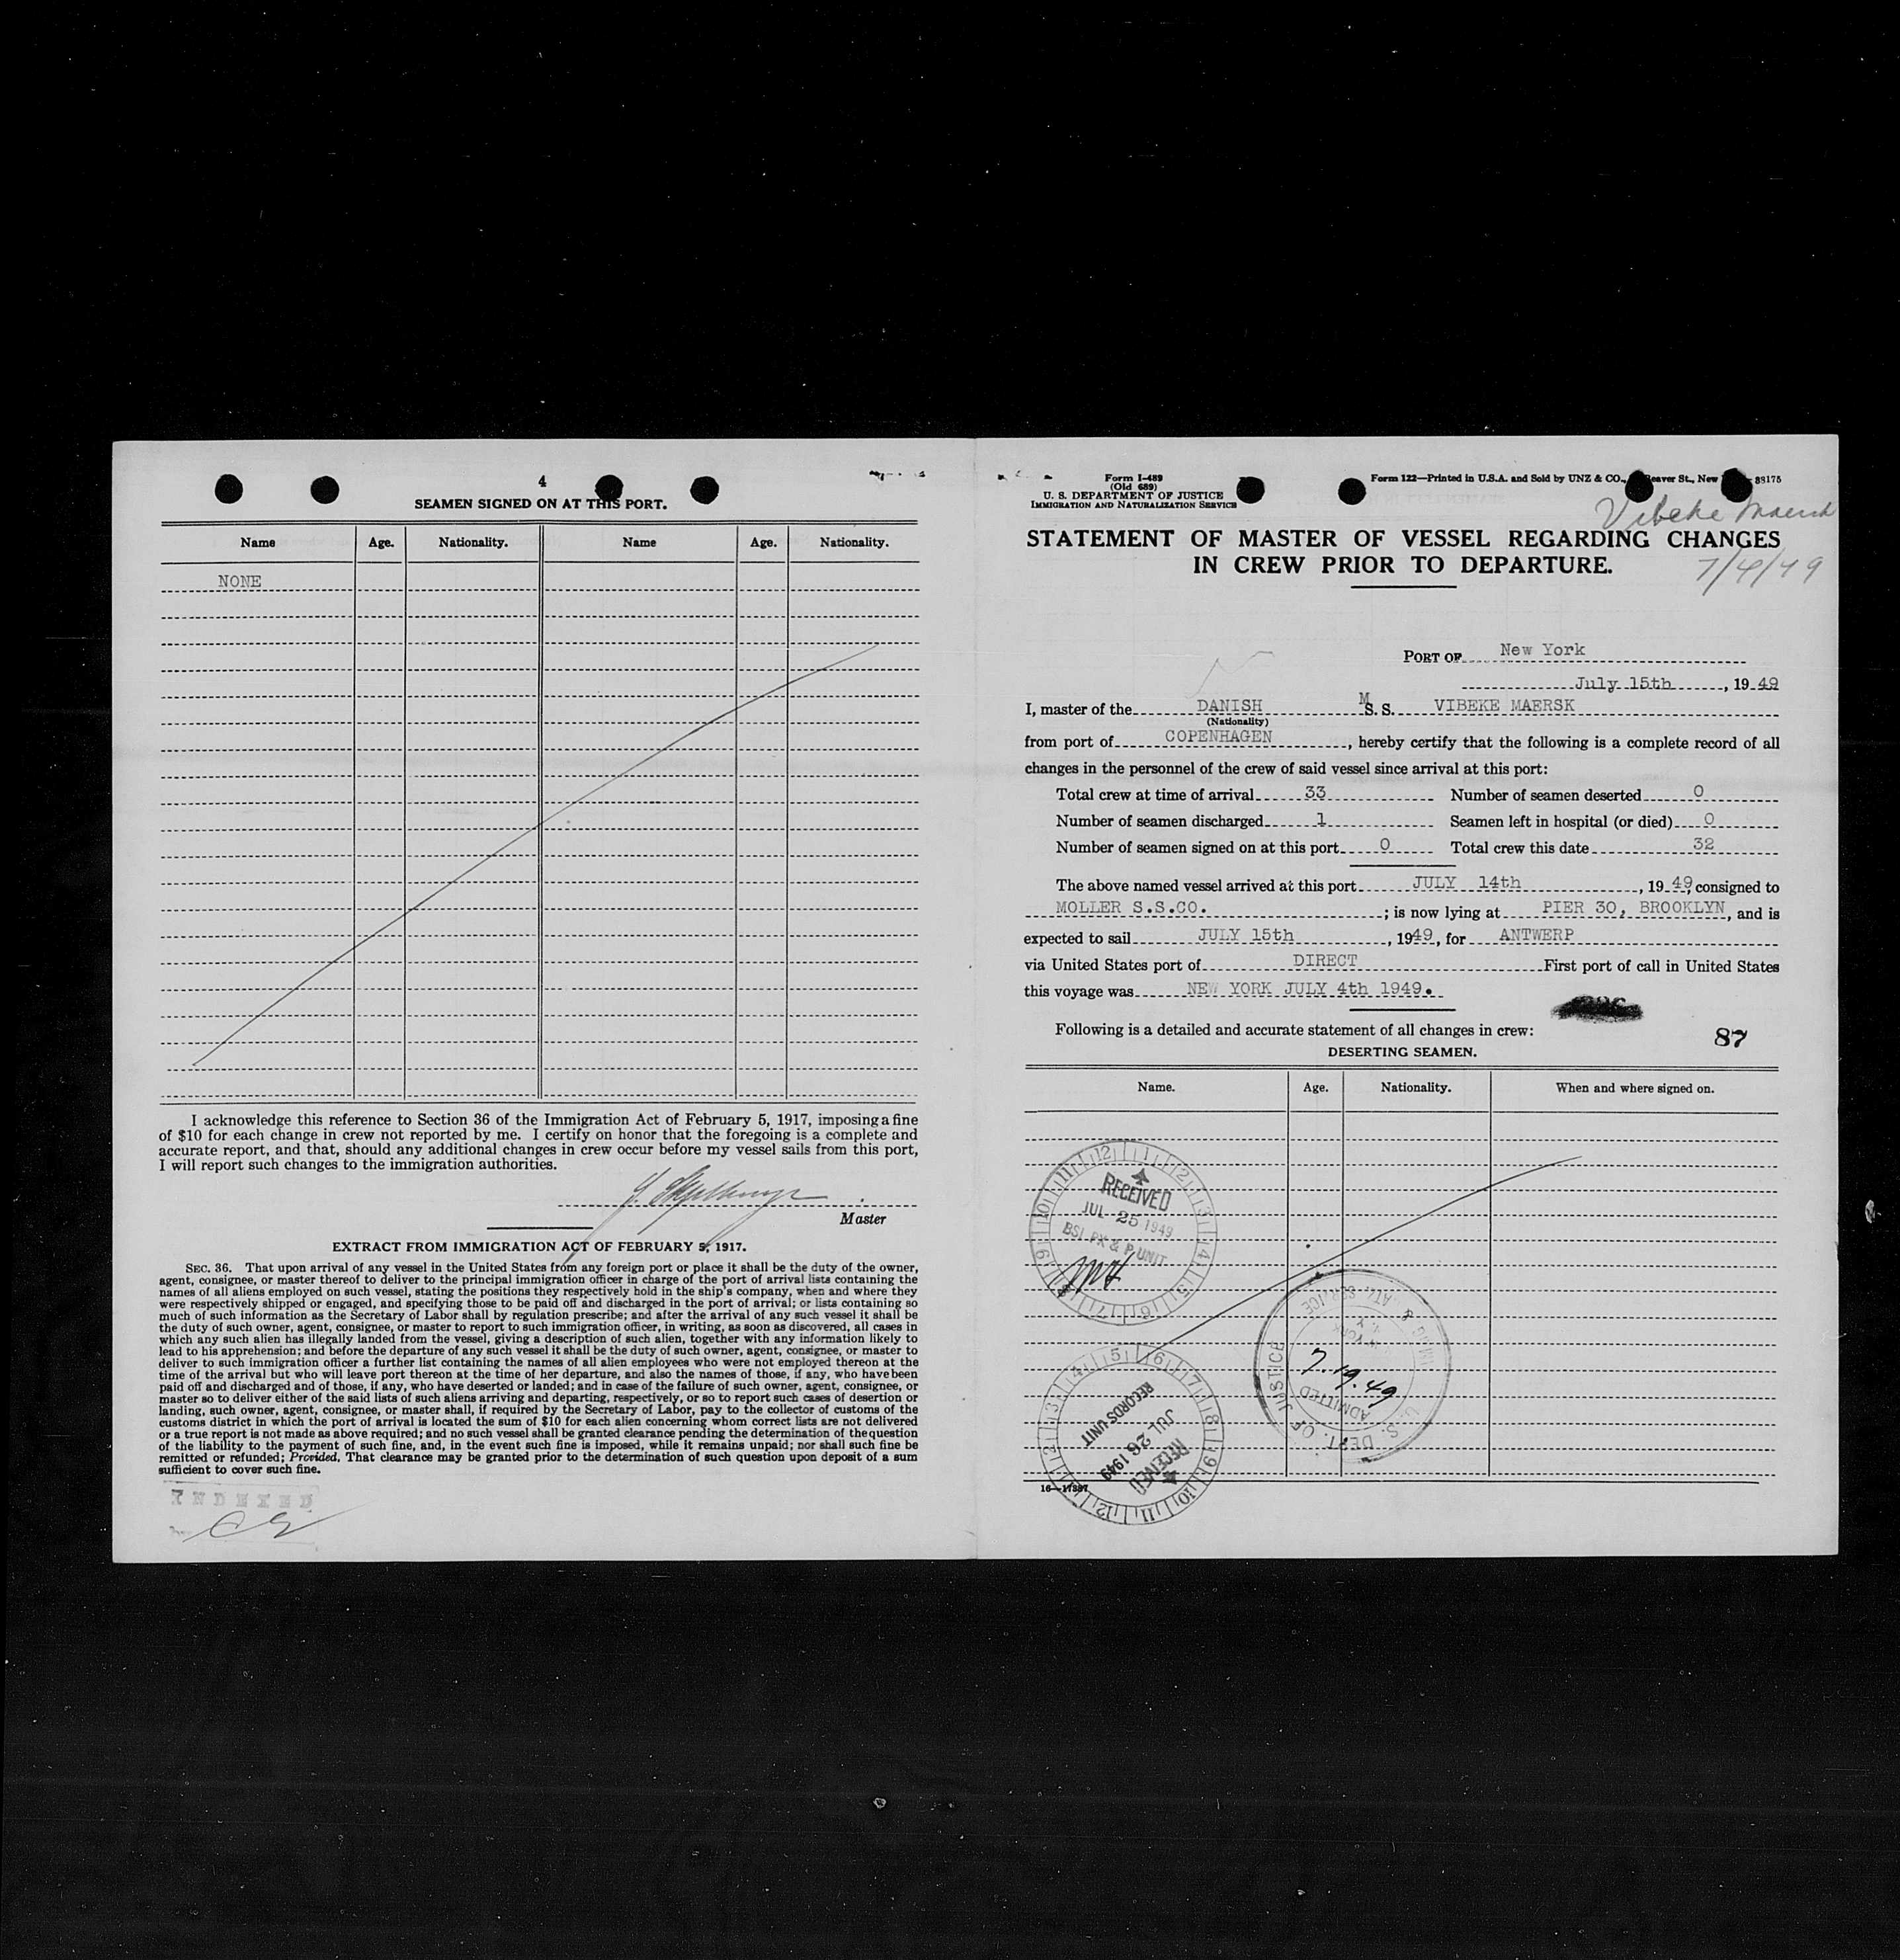 4
SEAMEN SIGNED ON AT THIS PORT.
Name Age. Nationality. Name Age. Nationality.
NONE
I acknowledge this reference to Section 36 of the Immigration Act of February 5, 1917, imposing a fine
of $10 for each change in crew not reported by me. I certify on honor that the foregoing is a complete and
accurate report, and that, should any additional changes in crew occur before my vessel sails from this port,
I will report such changes to the immigration authorities.
Master
EXTRACT FROM IMMIGRATION ACT OF FEBRUARY 5, 1917.
SEC. 36. That upon arrival of any vessel in the United States from any foreign port or place it shall be the duty of the owner,
agent, consignee, or master thereof to deliver to the principal immigration officer in charge of the port of arrival lists containing the
names of all aliens employed on such vessel, stating the positions they respectively hold in the ship's company, when and where they
were respectively shipped or engaged, and specifying those to be paid off and discharged in the port of arrival; or lists containing so
much of such information as the Secretary of Labor shall by regulation prescribe; and after the arrival of any such vessel it shall be
the duty of such owner, agent, consignee, or master to report to such immigration officer, in writing, as soon as discovered, all cases in
which any such alien has illegally landed from the vessel, giving a description of such alien, together with any information likely to
lead to his apprehension; and before the departure of any such vessel it shall be the duty of such owner, agent, consignee, or master to
deliver to such immigration officer a further list containing the names of all alien employees who were not employed thereon at the
time of the arrival but who will leave port thereon at the time of her departure, and also the names of those, if any, who have been
paid off and discharged and of those, if any, who have deserted or landed; and in case of the failure of such owner, agent, consignee, or
master so to deliver either of the said lists of such aliens arriving and departing, respectively, or so to report such cases of desertion or
landing, such owner, agent, consignee, or master shall, if required by the Secretary of Labor, pay to the collector of customs of the
customs district in which the port of arrival is located the sum of $10 for each alien concerning whom correct lists are not delivered
or a true report is not made as above required; and no such vessel shall be granted clearance pending the determination of the question
of the liability to the payment of such fine, and, in the event such fine is imposed, while it remains unpaid; nor shall such fine be
remitted or refunded; Provided, That clearance may be granted prior to the determination of such question upon deposit of a sum
sufficient to cover such fine.
INDEXED
Form I-489
(Old 689)
U. S. DEPARTMENT OF JUSTICE
IMMIGRATION AND NATURALIZATION SERVICE
Form 122—Printed in U.S.A. and Sold by UNZ & CO., Beaver St., New 38175
Vibeke Maersk
STATEMENT OF MASTER OF VESSEL REGARDING CHANGES
IN CREW PRIOR TO DEPARTURE.
7/4/49
PORT OF New York
July 15th, 1949
I, master of the DANISH M S. S. VIBEKE MAERSK
(Nationality)
from port of COPENHAGEN, hereby certify that the following is a complete record of all
changes in the personnel of the crew of said vessel since arrival at this port:
Total crew at time of arrival 33 Number of seamen deserted 0
Number of seamen discharged 1 Seamen left in hospital (or died) 0
Number of seamen signed on at this port 0 Total crew this date 32
The above named vessel arrived at this port JULY 14th, 1949, consigned to
MOLLER S.S.CO. ; is now lying at PIER 30, BROOKLYN, and is
expected to sail JULY 15th, 1949, for ANTWERP
via United States port of DIRECT First port of call in United States
this voyage was NEW YORK JULY 4th 1949.
Following is a detailed and accurate statement of all changes in crew:
87
DESERTING SEAMEN.
Name. Age. Nationality. When and where signed on.
12 1 2 3 4 5 6 7 8 9 10 11
RECEIVED
JUL 25 1949
BSI PX & P UNIT
U. S. DEPT. OF JUSTICE
7.19.49
ADMITTED
5 6 7 8 9 10 11 12 1 2 3 4
RECEIVED
JUL 26 1949
RECORDS UNIT
16—17387